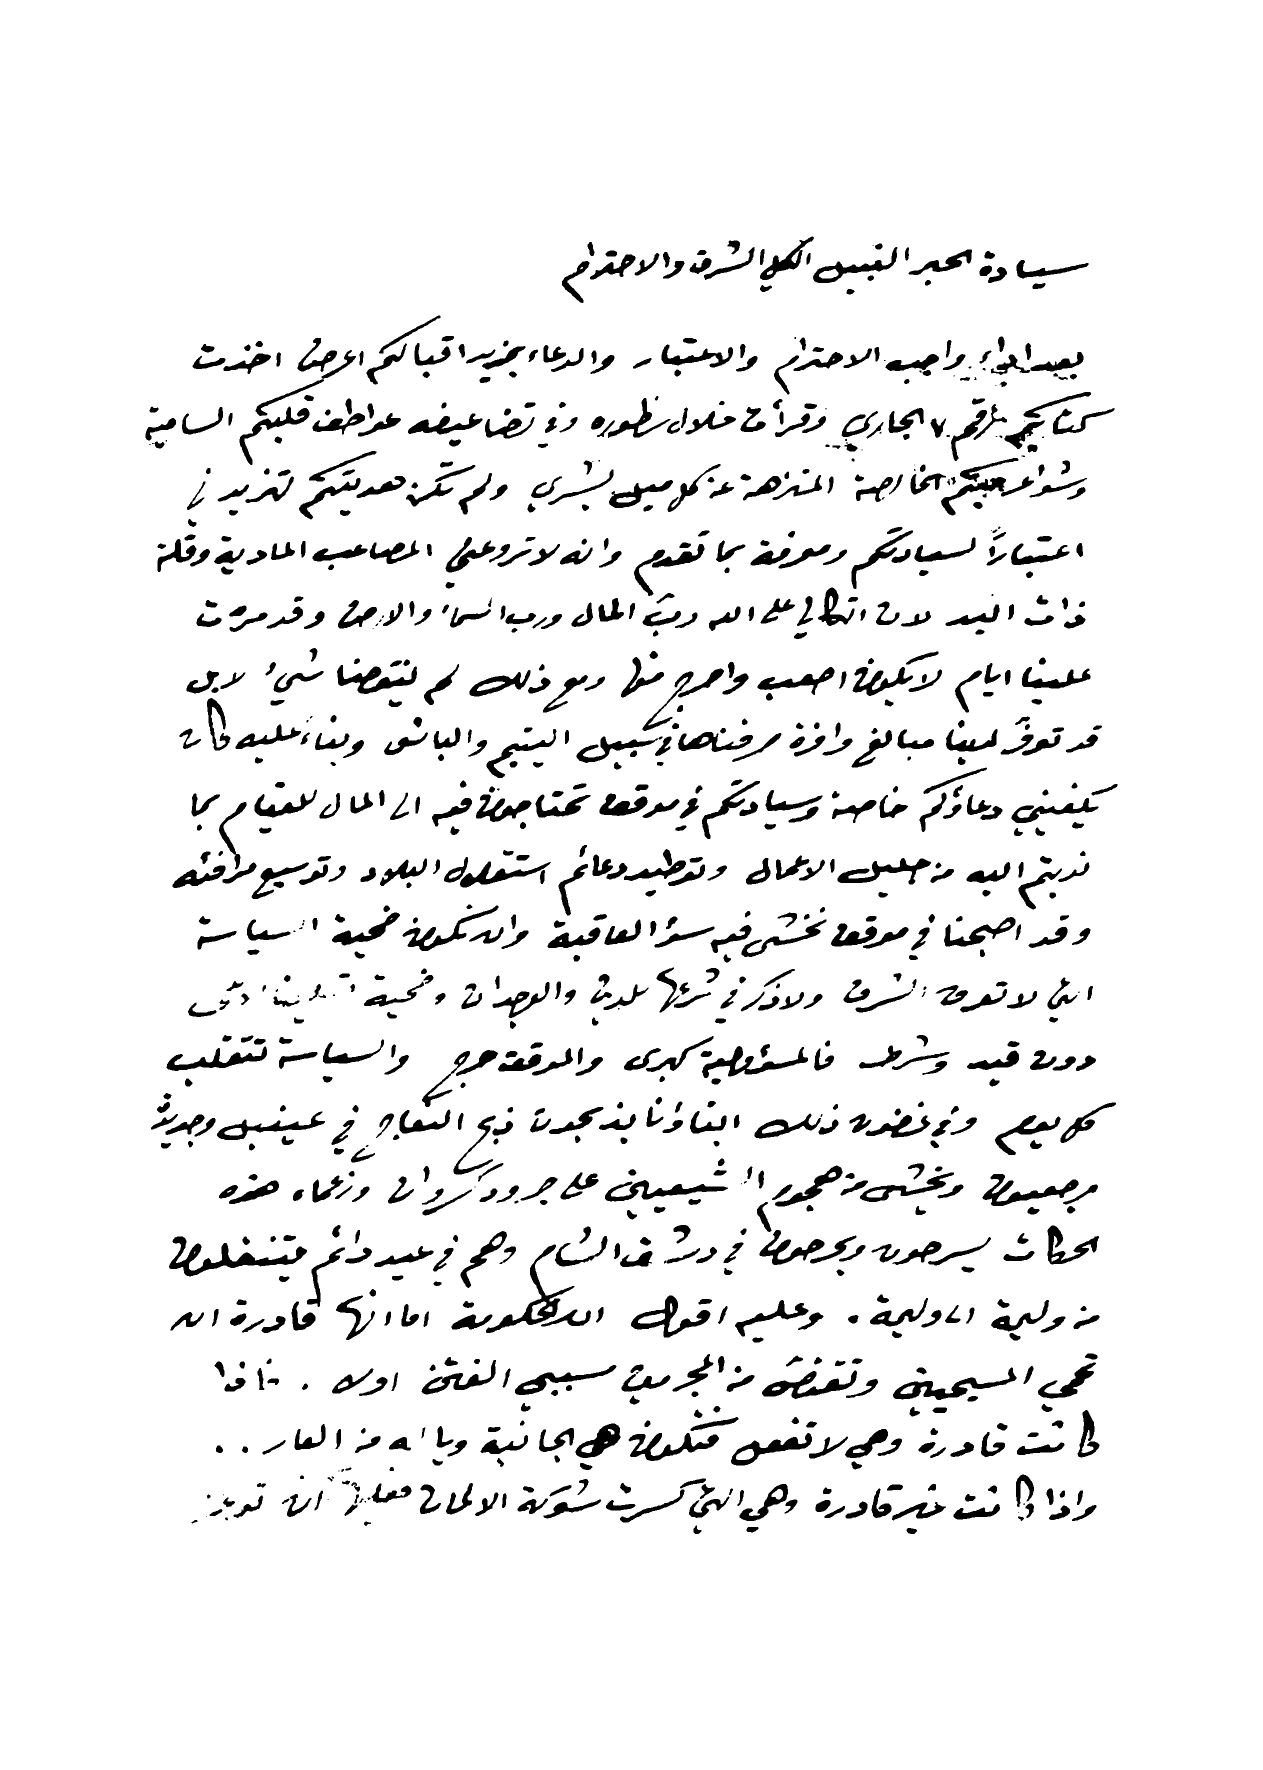 سيادة الحبر النبيل الكلي الشرف والاحترام
بعد ابداء واجب الاحترام والاعتبار والدعاء بمزيد اقبالكم اعرض اخذت
كتابكم رقم ٧ الجاري وقرأت خلال سطوره وفي تضاعيفه عواطف قلبكم السامية
محبتكم الخالصة المنزهة عن كل ميل بشري ولم تكن هديتكم لتزيد في
اعتباراً لسيادتكم ومعرفة بما تقدم وانه لا تروعني المصاعب المادية وقلة
ذات اليد لان اتكالي على الله رب المال ورب السماء والارض وقد مرت
علينا ايام لا يكون اصعب واحرج منها ومع ذلك لم ينقصنا شيء لا بل
قد توفر لدينا مبالغ وافرة صرفناها في سبيل اليتيم والبائس وبناء عليه كان
يكفيني دعاؤكم خاصة وسيادتكم في موقف تحتاجون فيه الى المال للقيام بما
ندبتم اليه من جليل الاعمال وتوطيد دعائم استقلال البلاد وتوسيع مرافئه
وقد اصبحنا في موقف نخشى فيه سؤ العاقبة وان نكون ضحية السياسة
التي لا تعرف الشرف ولا ذكر في شرعها للدين والوجدان وضحية
دون قيد وشرط فالمسؤولية كبرى والموقف حرج والسياسة تتقلب
كل يوم وفي غضون ذلك ابناؤنا يذبحون ذبح النعاج في عينبل وجديدة
مرجعيون ويخشى من هجوم الشيعيين على جرود كسروان وزعماء هذه
الحركات يسرحون ويمرحون في دمشق الشام وهم في عيد دائم يتنقلون
من وليمة الى وليمة . وعليه اقول ان الحكومة اما انها قادرة ان
تحمي المسيحيين وتقتص من المجرمين مسببي الفتن اولا . فاذا
كانت قادرة وهي لا تفعل فتكون هي الجانية ويا له من العار ..
واذا كانت غير قادرة وهي التي كسرت شوكة الالمان فعليها ان